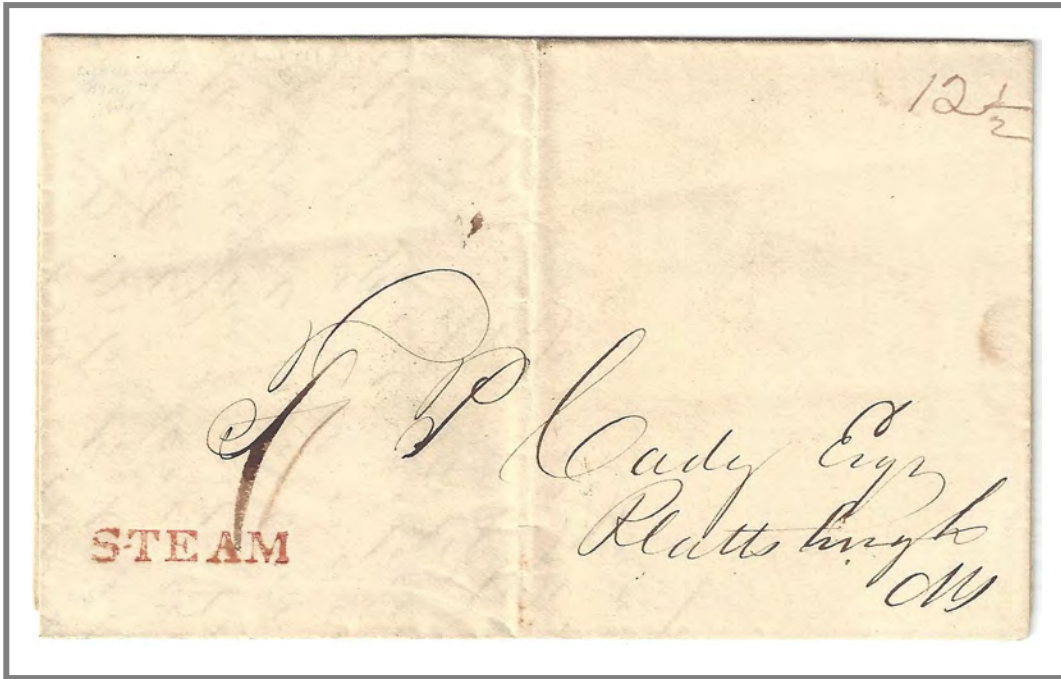 12 1/2
P Cady Esqr
Plattsburgh
NY
S-TEAM